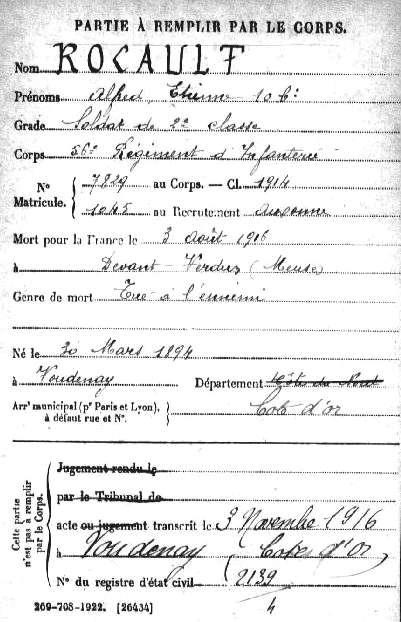 PARTIE À REMPLIR PAR LE CORPS.
Nom ROCAULT
Prénoms Alfred, Etienne
Grade Soldat de 2e classe
Corps 56e Régiment d'Infanterie
N° 7829 au Corps. — Cl. 1914
Matricule. 1045 au Recrutement Auxonne
Mort pour la France le 3 Août 1916
à Devant-Verdun (Meuse)
Genre de mort Tué à l'ennemi
Né le 30 Mars 1894
à Voudenay Département Côtes du Nord
Arr^t municipal (p^r Paris et Lyon), Cote d'or
à défaut rue et N°.
Cette partie n'est pas à remplir par le Corps.
Jugement rendu le
par le Tribunal de
acte ou jugement transcrit le 3 Novembre 1916
à Voudenay Cote d'Or
N° du registre d'état civil 2139
4
269-708-1922. [26434]